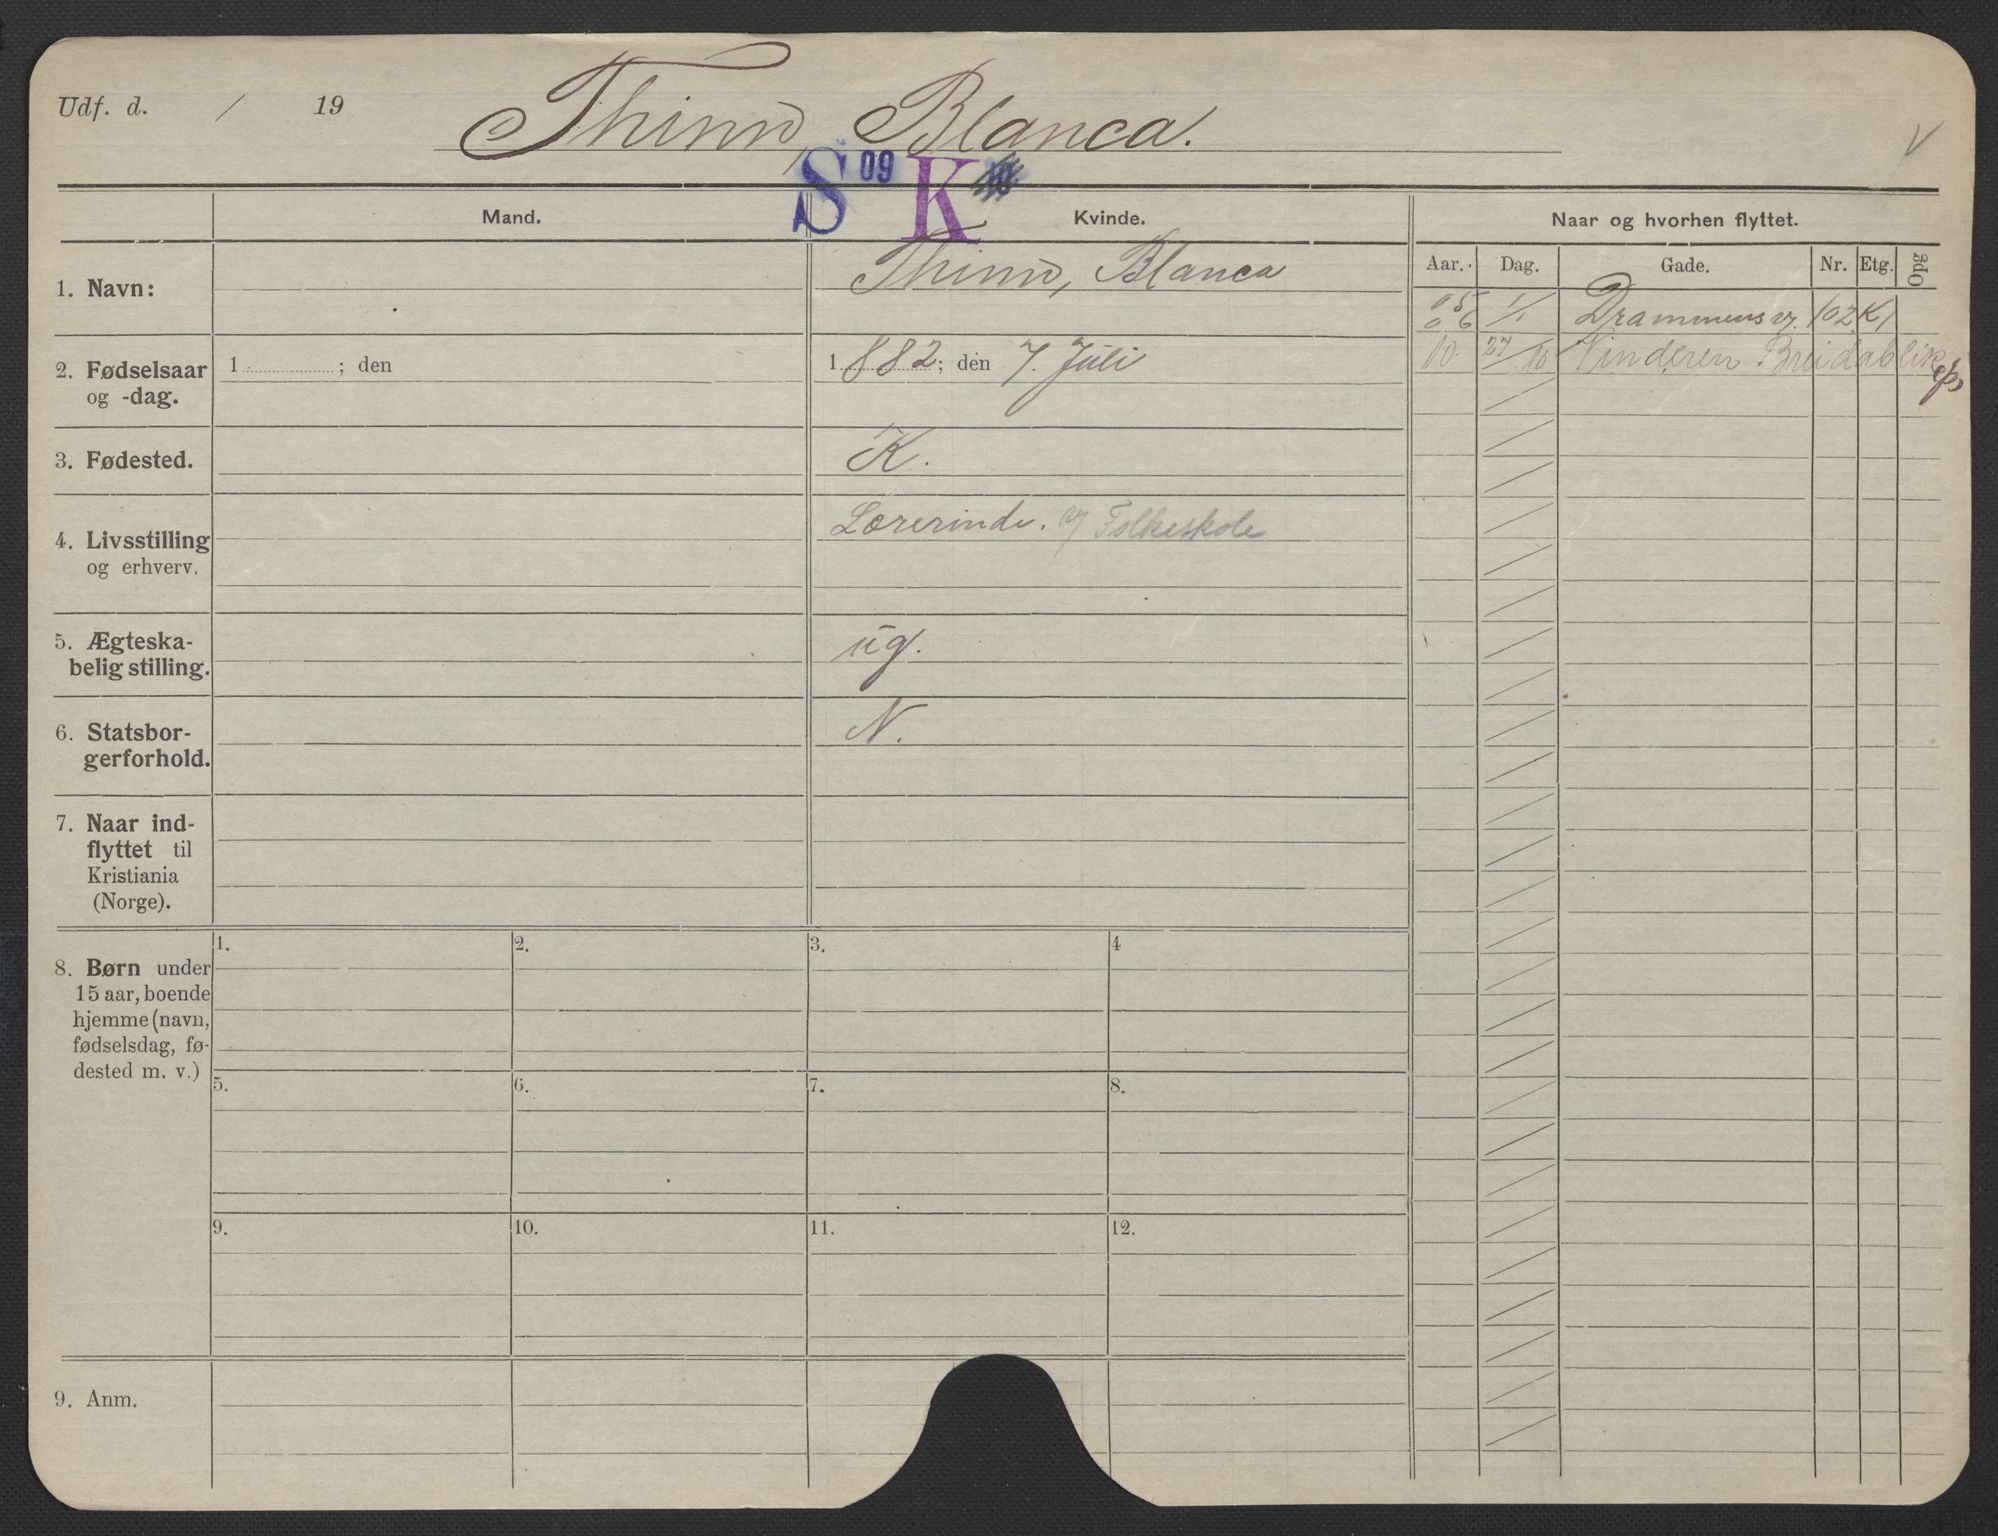 Udf. d. / 19 Thinn, Blanca.
V
S 09 K 10
Mand. Kvinde. Naar og hvorhen flyttet.
Aar. Dag. Gade. Nr. Etg. Opg
1. Navn: Thinn, Blanca
05 06 1/1 Drammensv. 102 K 1
10 27/10 Vinderen Breidablik
2. Fødselsaar 1 ; den 1 882; den 7. Juli
og -dag.
3. Fødested. K.
4. Livsstilling Lærerinde. v/ Folkeskole
og erhverv.
5. Ægteska-
belig stilling. ug.
6. Statsbor- N.
gerforhold.
7. Naar ind-
flyttet til
Kristiania
(Norge).
8. Børn under
15 aar, boende
hjemme (navn,
fødselsdag, fø-
dested m. v.)
1. 2. 3. 4
5. 6. 7. 8.
9. 10. 11. 12.
9. Anm.